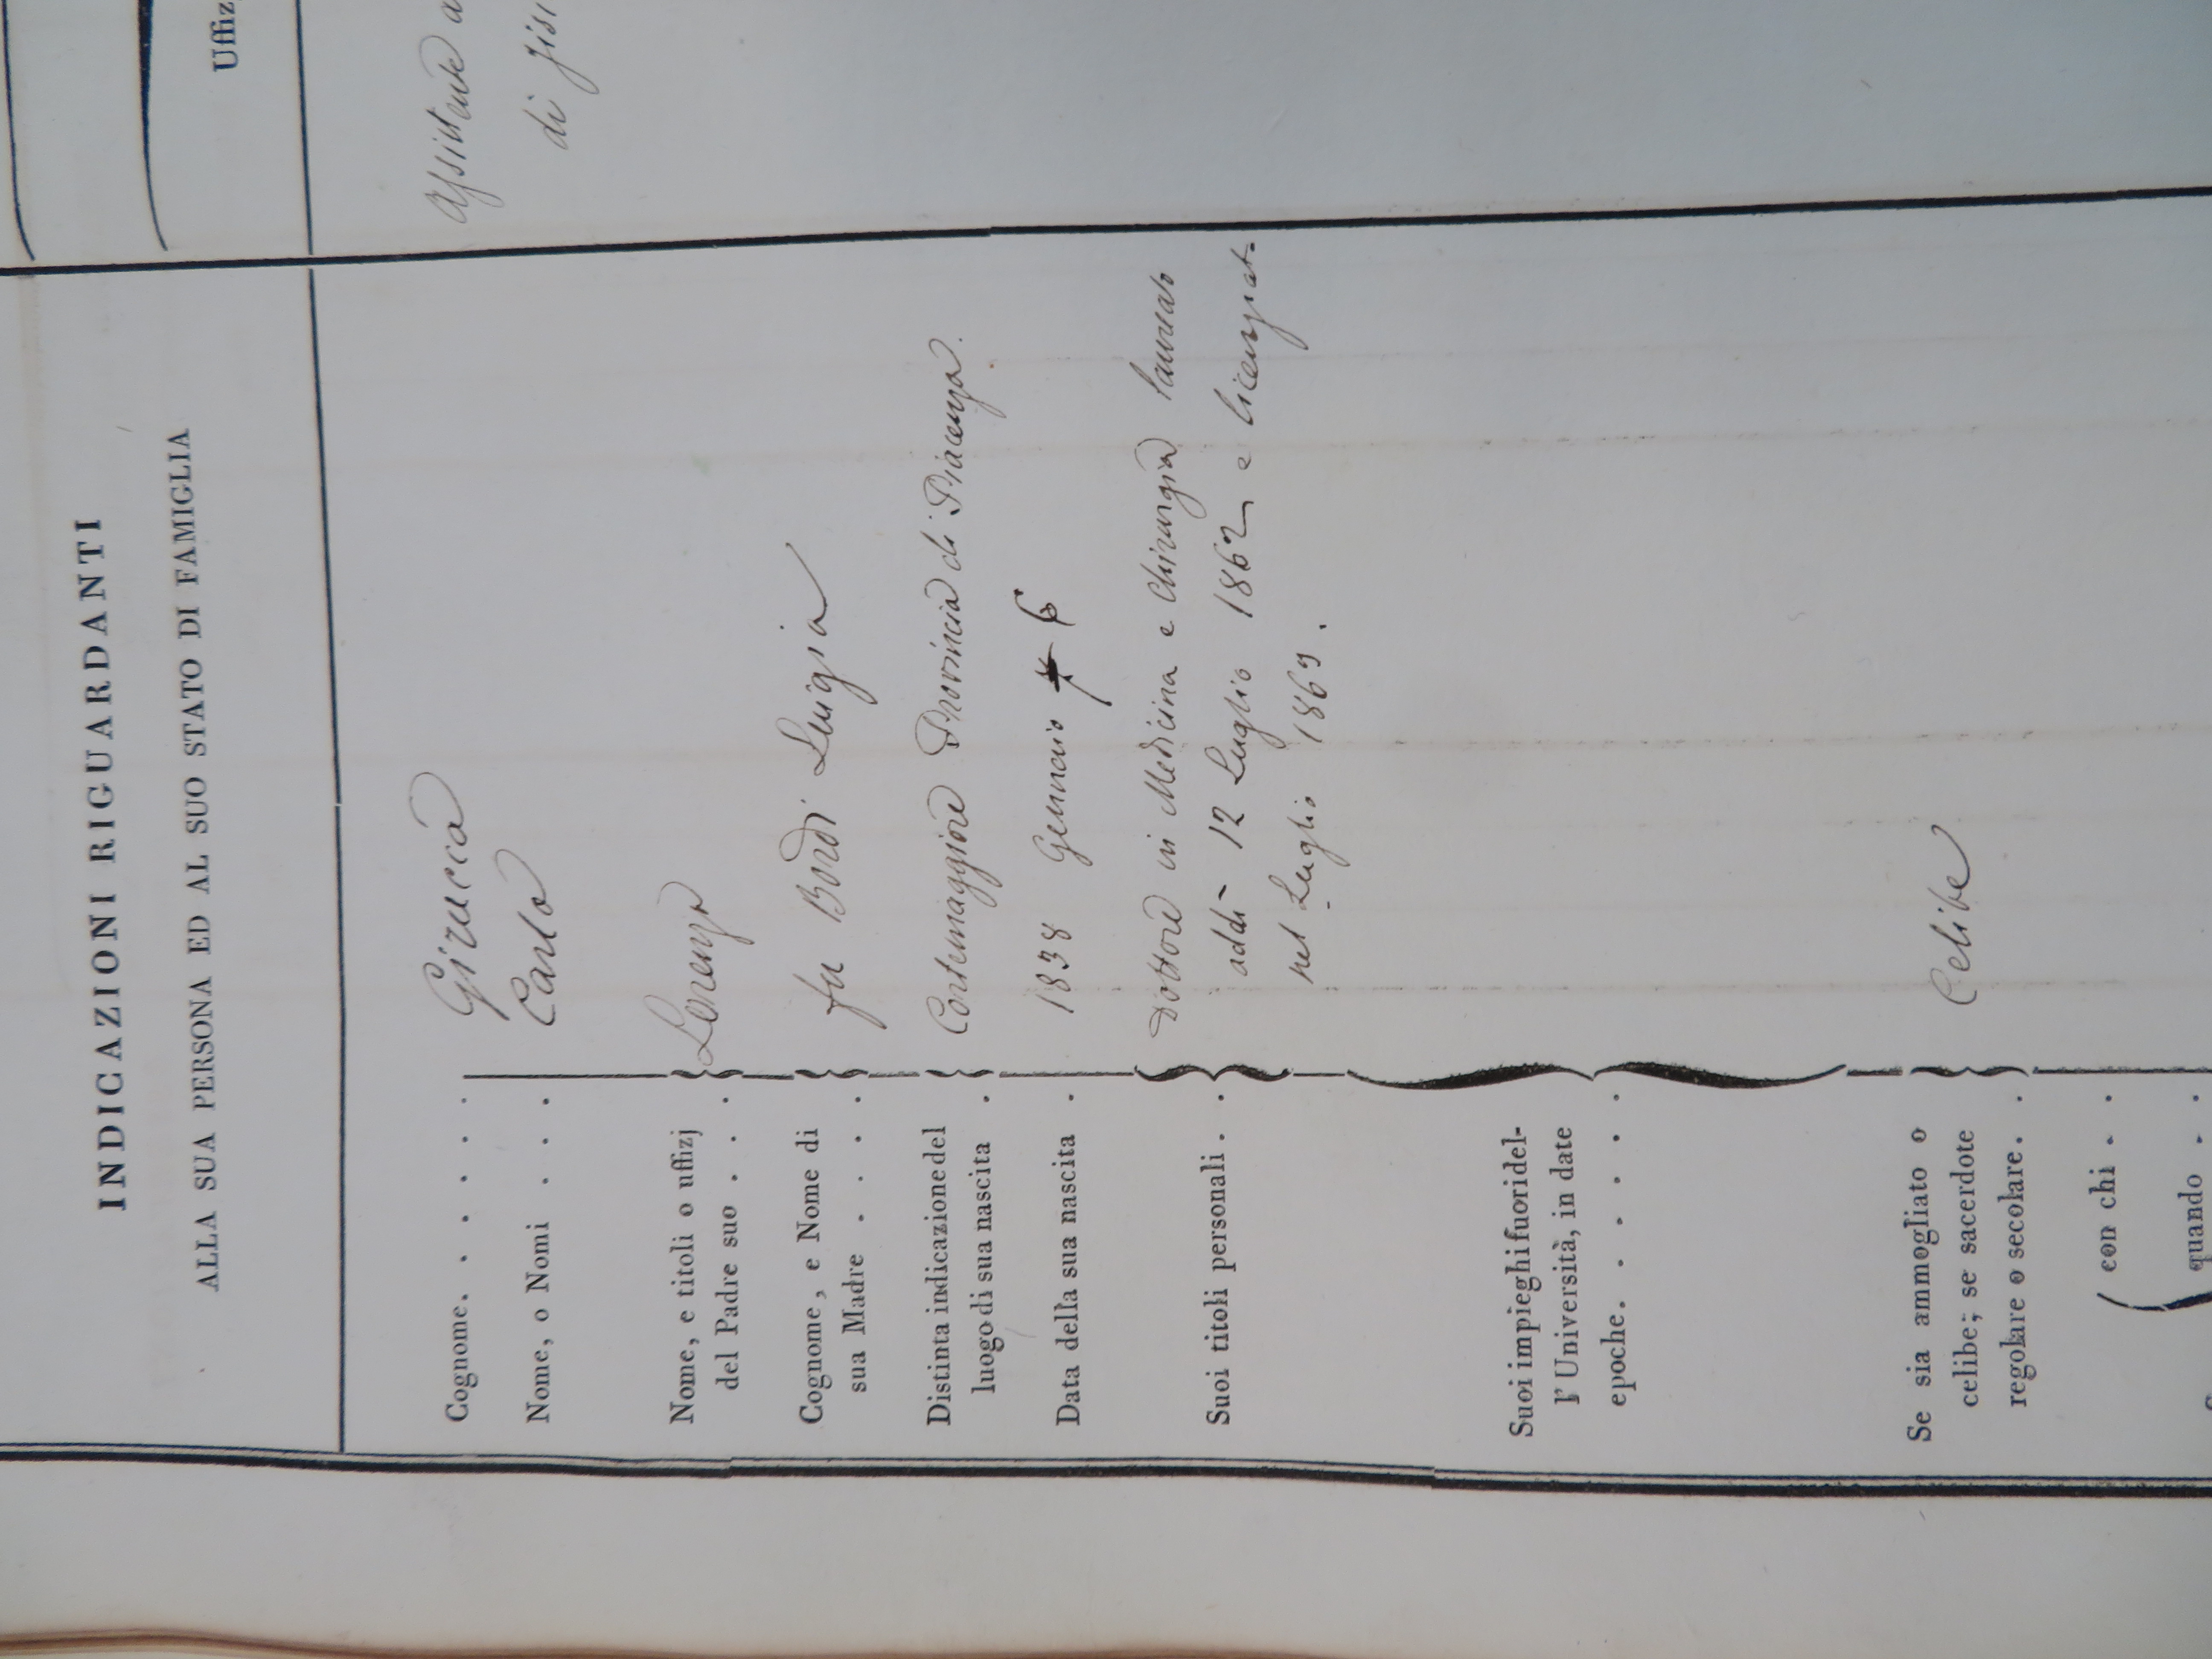 INDICAZIONI RIGUARDANTI
ALLA SUA PERSONA ED AL SUO STATO DI FAMIGLIA
Cognome. . . . . . Girucca
Nome, o Nomi . . . Carlo
Nome, e titoli o uffizj
del Padre suo . . . Lorenzo
Cognome, e Nome di
sua Madre . . . . fu Bordi Luigia
Distinta indicazione del
luogo di sua nascita . Cortemaggiore Provincia di Piacenza.
Data della sua nascita . 1838 Gennaio 6
Suoi titoli personali. . Dottore in Medicina e Chirurgia laureato
addì 12 Luglio 1862 e licenziat.
nel Luglio 1869.
Suoi impieghi fuori del-
l'Università, in date
epoche. . . . . . .
Se sia ammogliato o
celibe; se sacerdote
regolare o secolare. . Celibe
con chi . . .
quando . . .
Uffiz
Assistente a
di fisi